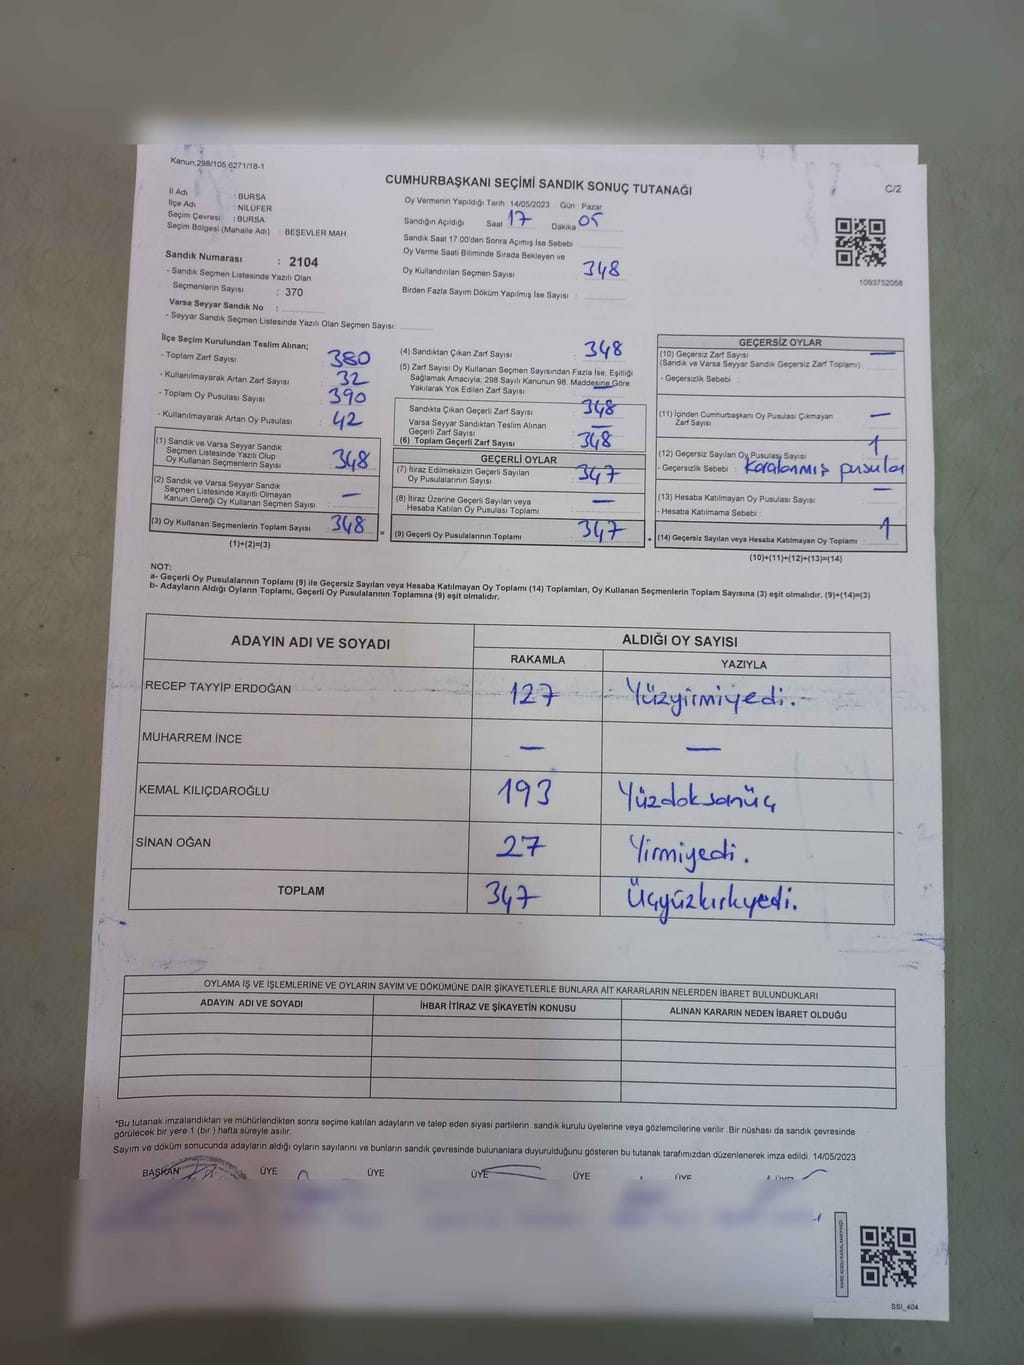 Kanun;298/105,6271/18-1
CUMHURBAŞKANI SEÇİMİ SANDIK SONUÇ TUTANAĞI
C/2
İl Adı : BURSA
İlçe Adı : NİLÜFER
Seçim Çevresi : BURSA
Seçim Bölgesi (Mahalle Adı) : BEŞEVLER MAH.
Sandık Numarası : 2104
- Sandık Seçmen Listesinde Yazılı Olan
Seçmenlerin Sayısı : 370
Varsa Seyyar Sandık No :
- Seyyar Sandık Seçmen Listesinde Yazılı Olan Seçmen Sayısı:
Oy Vermenin Yapıldığı Tarih : 14/05/2023 Gün : Pazar
Sandığın Açıldığı Saat 17 Dakika 05
Sandık Saat 17:00'den Sonra Açımış İse Sebebi :
Oy Verme Saati Bitiminde Sırada Bekleyen ve
Oy Kullandırılan Seçmen Sayısı : 348
Birden Fazla Sayım Döküm Yapılmış İse Sayısı :
1093752058
İlçe Seçim Kurulundan Teslim Alınan;
- Toplam Zarf Sayısı : 380
- Kullanılmayarak Artan Zarf Sayısı : 32
- Toplam Oy Pusulası Sayısı : 390
- Kullanılmayarak Artan Oy Pusulası : 42
(1) Sandık ve Varsa Seyyar Sandık
Seçmen Listesinde Yazılı Olup
Oy Kullanan Seçmenlerin Sayısı : 348
(2) Sandık ve Varsa Seyyar Sandık
Seçmen Listesinde Kayıtlı Olmayan
Kanun Gereği Oy Kullanan Seçmen Sayısı : —
(3) Oy Kullanan Seçmenlerin Toplam Sayısı : 348
(1)+(2)=(3)
(4) Sandıktan Çıkan Zarf Sayısı : 348
(5) Zarf Sayısı Oy Kullanan Seçmen Sayısından Fazla İse, Eşitliği
Sağlamak Amacıyla; 298 Sayılı Kanunun 98. Maddesine Göre
Yakılarak Yok Edilen Zarf Sayısı : —
Sandıkta Çıkan Geçerli Zarf Sayısı : 348
Varsa Seyyar Sandıktan Teslim Alınan
Geçerli Zarf Sayısı : —
(6) Toplam Geçerli Zarf Sayısı : 348
GEÇERLİ OYLAR
(7) İtiraz Edilmeksizin Geçerli Sayılan
Oy Pusulalarının Sayısı : 347
(8) İtiraz Üzerine Geçerli Sayılan veya
Hesaba Katılan Oy Pusulası Toplamı : —
= (9) Geçerli Oy Pusulalarının Toplamı : 347
GEÇERSİZ OYLAR
(10) Geçersiz Zarf Sayısı —
(Sandık ve Varsa Seyyar Sandık Geçersiz Zarf Toplamı) :
- Geçersizlik Sebebi :
(11) İçinden Cumhurbaşkanı Oy Pusulası Çıkmayan —
Zarf Sayısı :
(12) Geçersiz Sayılan Oy Pusulası Sayısı : 1
- Geçersizlik Sebebi : Karalanmış pusula
(13) Hesaba Katılmayan Oy Pusulası Sayısı : —
- Hesaba Katılmama Sebebi :
+ (14) Geçersiz Sayılan veya Hesaba Katılmayan Oy Toplamı : 1
(10)+(11)+(12)+(13)=(14)
NOT:
a- Geçerli Oy Pusulalarının Toplamı (9) ile Geçersiz Sayılan veya Hesaba Katılmayan Oy Toplamı (14) Toplamları, Oy Kullanan Seçmenlerin Toplam Sayısına (3) eşit olmalıdır. (9)+(14)=(3)
b- Adayların Aldığı Oyların Toplamı, Geçerli Oy Pusulalarının Toplamına (9) eşit olmalıdır.
ADAYIN ADI VE SOYADI ALDIĞI OY SAYISI
RAKAMLA YAZIYLA
RECEP TAYYİP ERDOĞAN 127 Yüzyirmiyedi.
MUHARREM İNCE — —
KEMAL KILIÇDAROĞLU 193 Yüzdoksanüç
SİNAN OĞAN 27 Yirmiyedi.
TOPLAM 347 Üçyüzkırkyedi.
OYLAMA İŞ VE İŞLEMLERİNE VE OYLARIN SAYIM VE DÖKÜMÜNE DAİR ŞİKAYETLERLE BUNLARA AİT KARARLARIN NELERDEN İBARET BULUNDUKLARI
ADAYIN ADI VE SOYADI İHBAR İTİRAZ VE ŞİKAYETİN KONUSU ALINAN KARARIN NEDEN İBARET OLDUĞU
*Bu tutanak imzalandıktan ve mühürlendikten sonra seçime katılan adayların ve talep eden siyasi partilerin sandık kurulu üyelerine veya gözlemcilerine verilir .Bir nüshası da sandık çevresinde
görülecek bir yere 1 (bir ) hafta süreyle asılır.
Sayım ve döküm sonucunda adayların aldığı oyların sayılarını ve bunların sandık çevresinde bulunanlara duyurulduğunu gösteren bu tutanak tarafımızdan düzenlenerek imza edildi. 14/05/2023
BAŞKAN ÜYE ÜYE ÜYE ÜYE ÜYE ÜYE
SSI_404